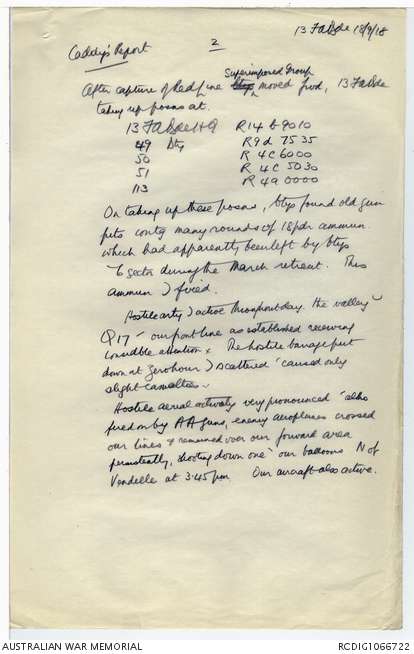 13 FABde 18/9/18
Caddy's Report
2
Superimposed Group
After capture of Red Line moved fwd, 13 FABde
taking up posns at.
13 FABde HQ R14 b 9010
49 Bty R9d 7535
50 R4C 6000
51 R4C 5030
113 R4a 0000
On taking up these posns, btys found old gun
pits contg many rounds of 18pdr ammun.
which had apparently been left by btys
sector during the March retreat. This
ammun fired.
Hostile arty active throughout day. The valley
Q17 our front line as established receiving
considble attention. The hostile barrage put
down at Zero hour scattered caused only
slight casualties.
Hostile aerial activity very pronounced also
fired on by AA guns, enemy aeroplanes crossed
our lines & remained over our forward area
persistently, shooting down one our balloons N of
Vendelle at 3.45pm Our aircraft also active.
AUSTRALIAN WAR MEMORIAL RCDIG1066722